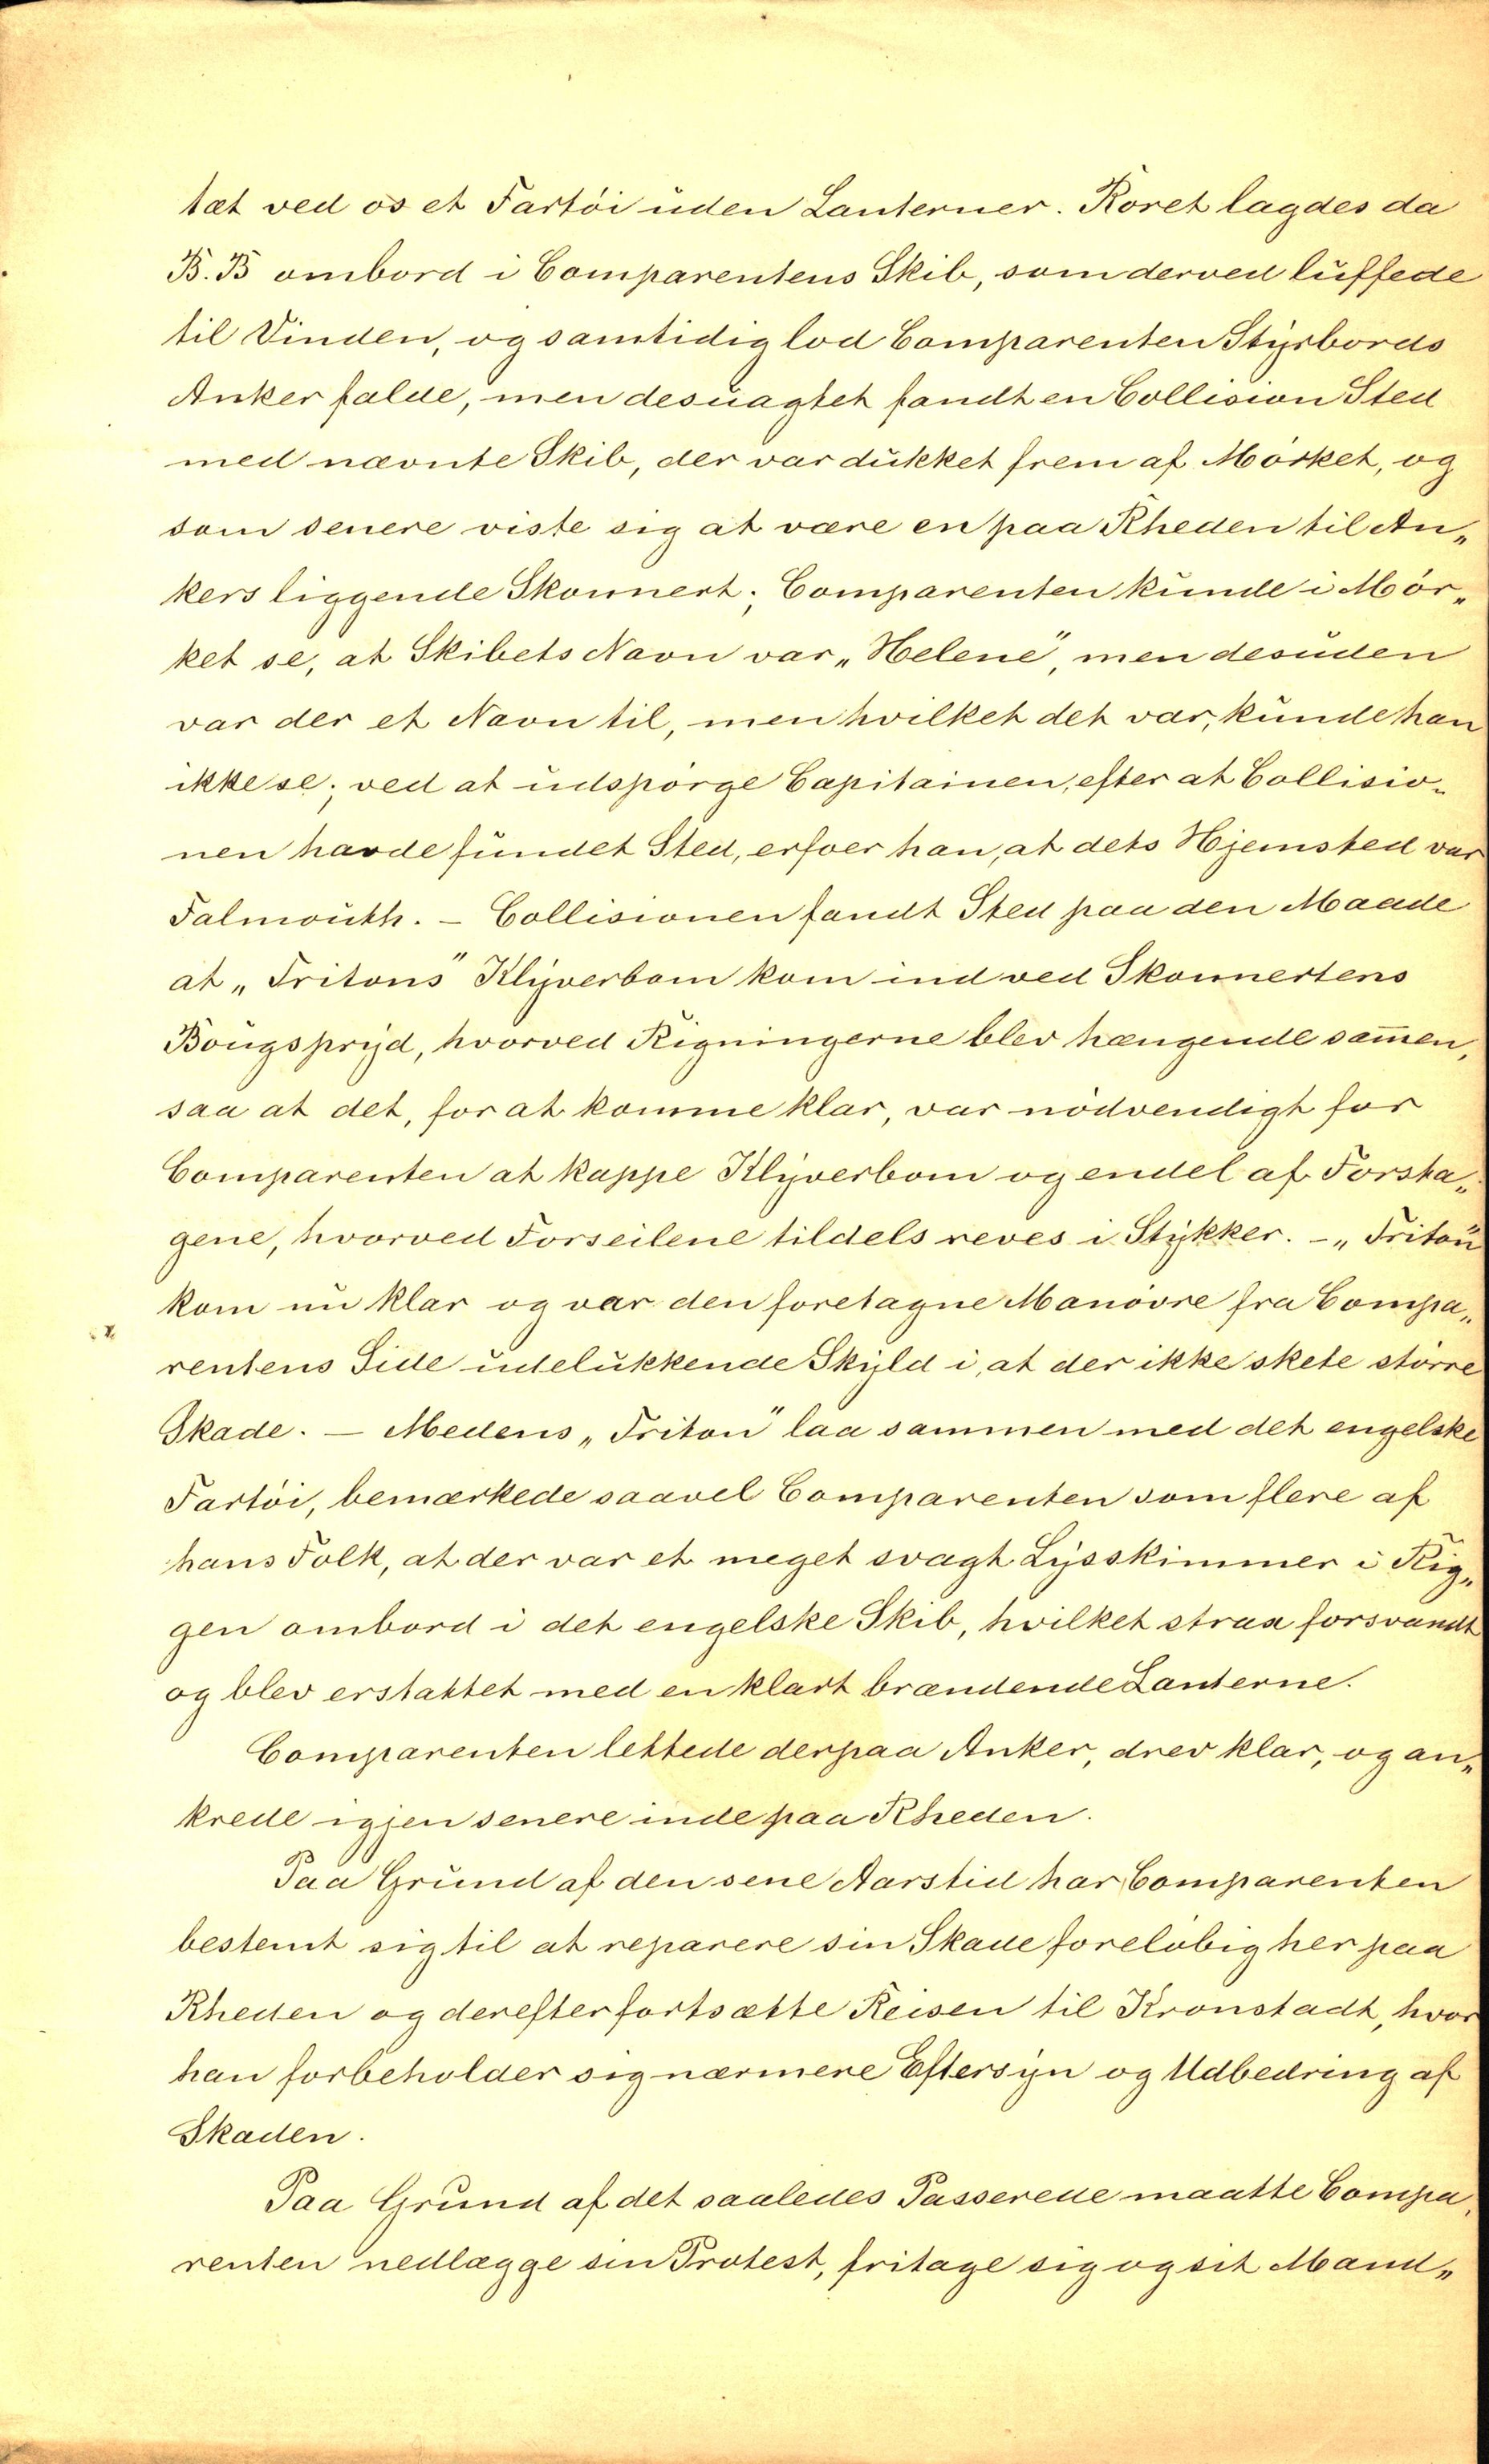 tæt ved os et Fartöi uden Lanterner. Roret lagdes da
B.B ombord i Comparentens Skib, som derved luffede
til Vinden, og samtidig lod Comparenten Styrbords
Anker falde, men desuagtet fandt en Collision Sted
med nævnte Skib, der var dukket frem af Mörket, og
som senere viste sig at være en paa Rheden til An„
kers liggende Skonnert; Comparenten kunde i Mör„
ket se, at Skibets Navn var „Helene", men desuden
var der et Navn til, men hvilket det var, kunde han
ikke se; ved at udspörge Capitainen, efter at Collisio„
nen havde fundet Sted, erfoer han, at dets Hjemsted var
Falmouth. – Collisionen fandt Sted paa den Maade
at „Tritons" Klyverbom kom ind ved Skonnertens
Bougspryd, hvorved Rigningerne blev hængende sam̅en,
saa at det, for at komme klar, var nödvendigt for
Comparenten at kappe Klyverbom og endel af Forsta„
gene, hvorved Forseilene tildels reves i Stykker. – „Triton"
kom nu klar og var den foretagne Manövre fra Compa„
rentens Side udelukkende Skyld i, at der ikke skete större
Skade. – Medens „Triton" laa sammen med det engelske
Fartöi, bemærkede saavel Comparenten som flere af
hans Folk, at der var et meget svagt Lysskimmer i Rig„
gen ombord i det engelske Skib, hvilket strax forsvandt
og blev erstattet med en klart brændende Lanterne.
Comparenten lettede derpaa Anker, drev klar, og an„
krede igjen senere inde paa Rheden.
Paa Grund af den sene Aarstid har Comparenten
bestemt sig til at reparere sin Skade forelöbig her paa
Rheden og derefter fortsætte Reisen til Kronstadt, hvor
han forbeholder sig nærmere Eftersyn og Udbedring af
Skaden.
Paa Grund af det saaledes Passerede maatte Compa„
renten nedlægge sin Protest, fritage sig og sit Mand„